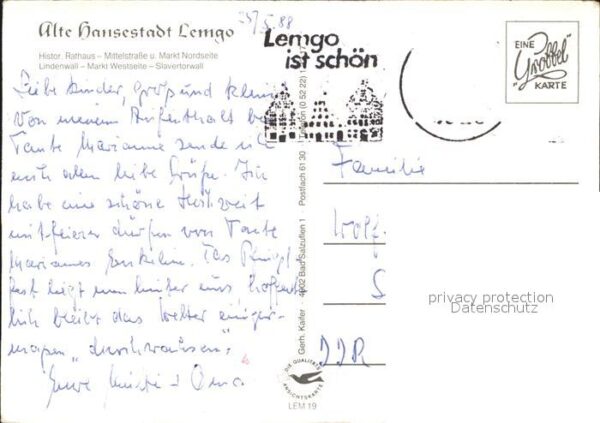 Alte Hansestadt Lemgo
Histor. Rathaus – Mittelstraße u. Markt Nordseite
Lindenwall – Markt Westseite – Slavertorwall
5.88
Lemgo
ist schön
EINE
"Grobbel"
KARTE
Liebe Kinder, groß und klein!
Von meinem Aufenthalt bei
Tante Marianne sende ich
euch allen liebe Grüße. Ich
habe eine schöne Hochzeit
mitfeiern dürfen von Tante
Mariannes Enkelin. Das Pfingst-
fest liegt nun hinter uns, hoffent-
lich bleibt das Wetter einiger-
maßen „durchwachsen".
Eure Oma
Gerh. Kaifer 4902 Bad Salzuflen 1 Postfach 61 30 Telefon (0 52 22) 1
Familie
Wolf
S
DDR
privacy protection
Datenschutz
DIE QUALITÄTS
ANSICHTSKARTE
LEM 19